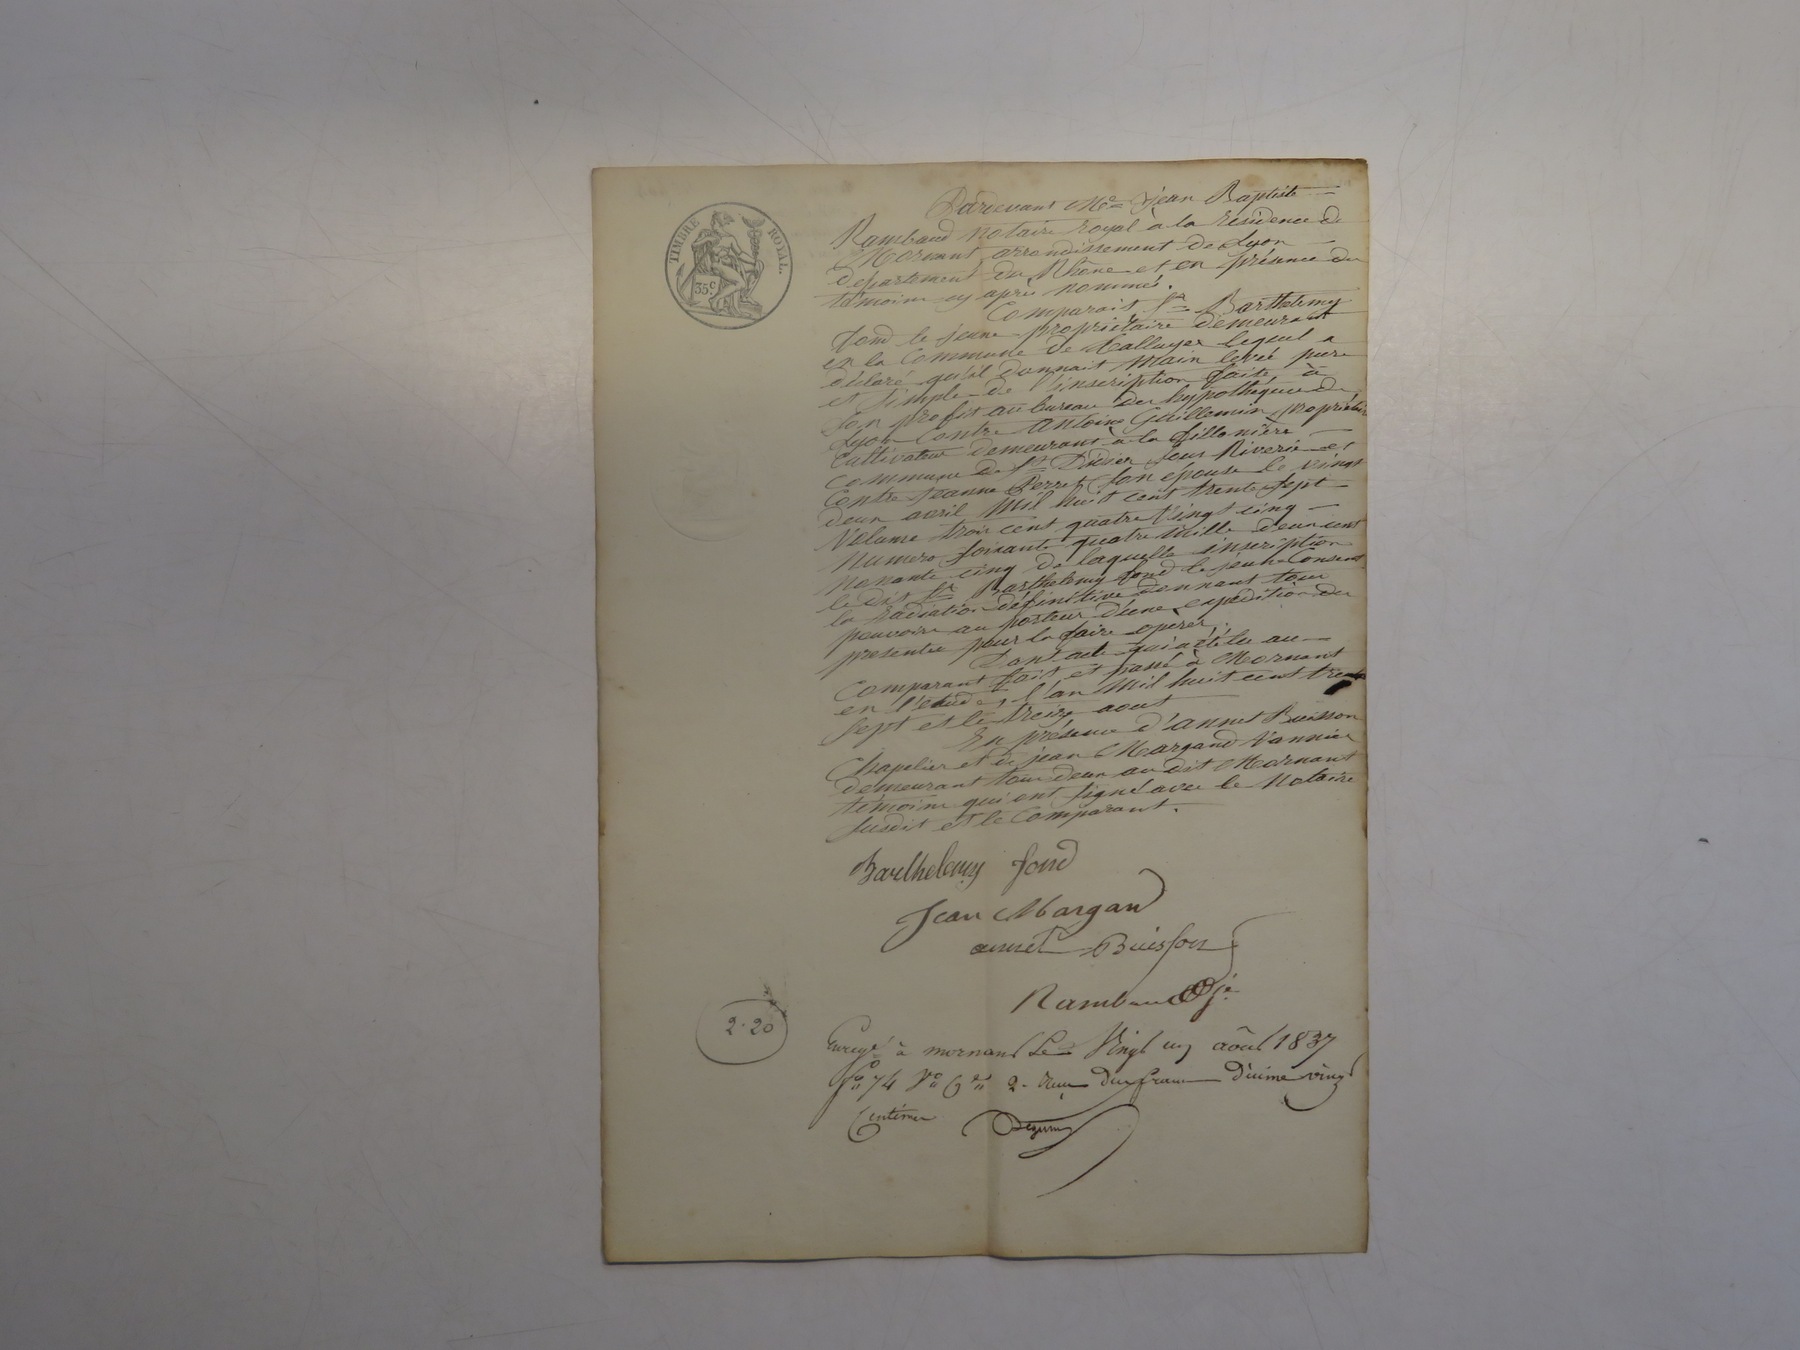 TIMBRE ROYAL.
35c
Pardevant Me Jean Baptiste
Rambaud notaire royal à la résidence de
Mornant arrondissement de Lyon
département du Rhône et en présence des
témoins cy après nommés.
Comparait Sr Barthelemy
fond le jeune propriétaire demeurant
en la Commune de lequel a
déclaré qu'il donnait Main levée pure
et simple de l'inscription faite à
son profit au bureau des hypothéques de
Lyon Contre Antoine Guillemin propriétaire
Cultivateur demeurant à la fillonière
commune de St Didier sous Riverie et
Contre Jeanne Perret son épouse le vingt
deux avril Mil huit cent trente sept
Volume trois cent quatre Vingt cinq
Numero soixante quatre Mille deux cent
nonante cinq de laquelle inscription
le dit Sr Barthelemy fond le jeune Consent
la Radiation définitive donnant tout
pouvoir au porteur d'une expédition des
presentes pour la faire opérer.
Dont acte qui a été lu au
Comparant fait et passé à Mornant
en l'étude l'an Mil huit cent trente
sept et le treize aout
En présence d'annet Buisson
Chapelier et de jean Margand Vannier
demeurant tous deux au dit Mornant
témoins qui ont signé avec le Notaire
susdit et le Comparant.
Barthelemy fond
Jean Margand
annet Buisson
Rambaud
2.20
Enregé à mornant Le Vingt un août 1837
fo 74 Vo Cen 2. Reçu deux francs dixime vingt
Centimes